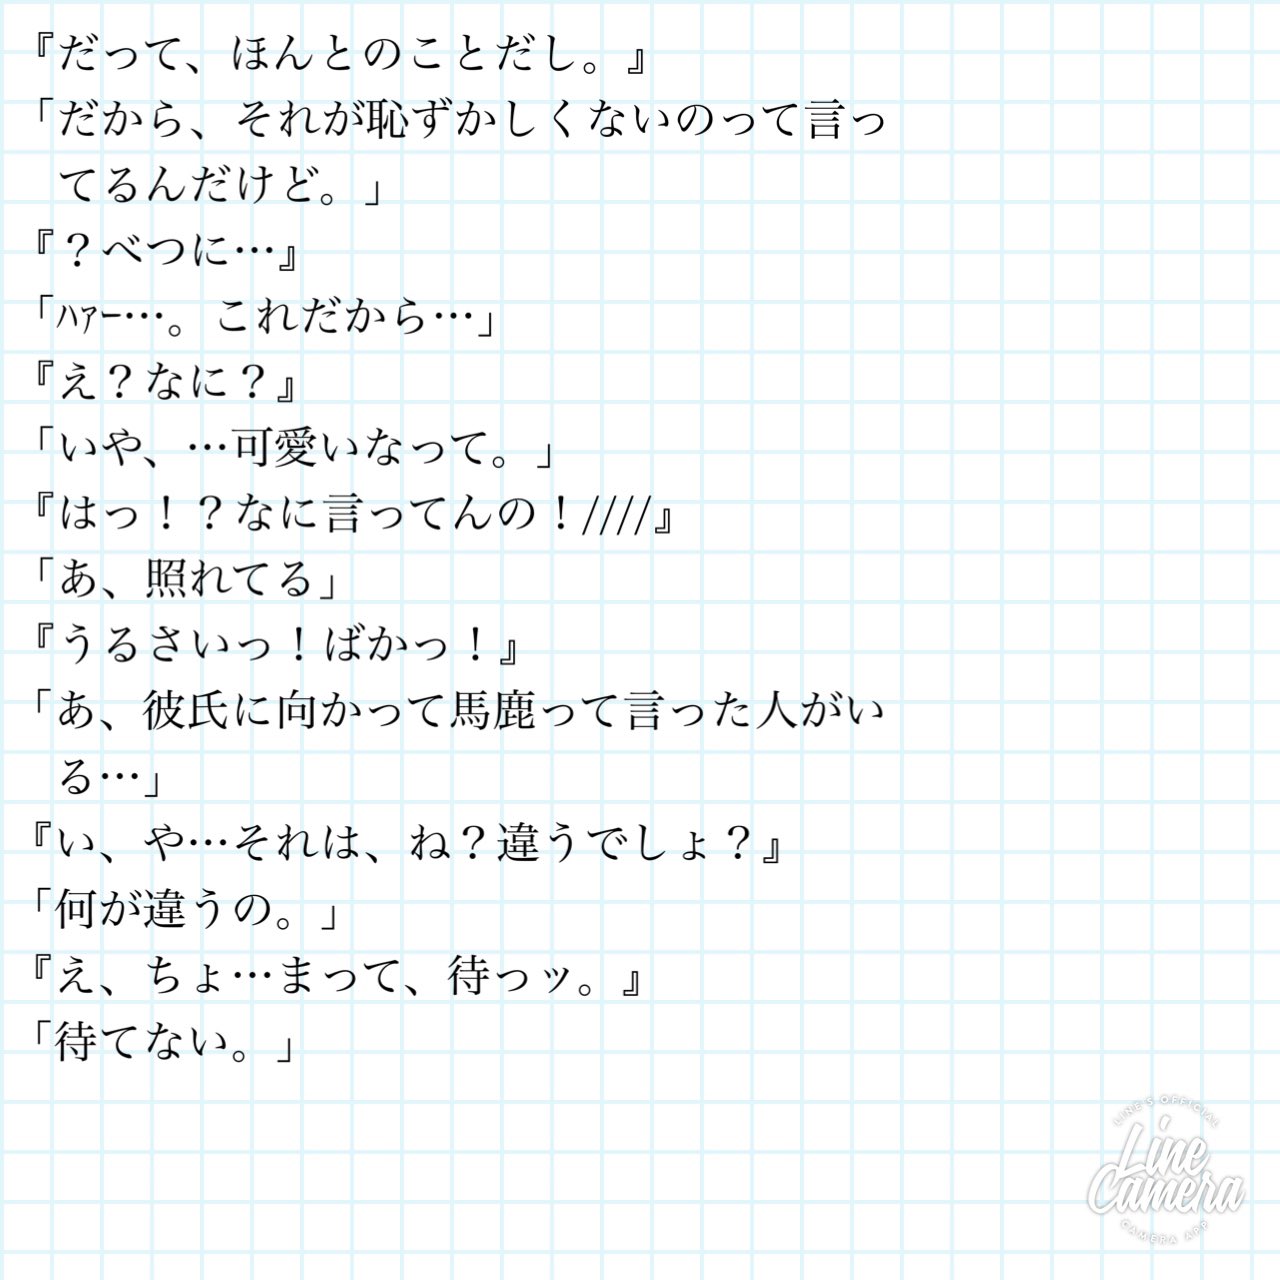 『だって、ほんとのことだし。』
「だから、それが恥ずかしくないのって言っ
てるんだけど。」
『？べつに…』
「ﾊｧｰ…。これだから…」
『え？なに？』
「いや、…可愛いなって。」
『はっ！？なに言ってんの！////』
「あ、照れてる」
『うるさいっ！ばかっ！』
「あ、彼氏に向かって馬鹿って言った人がい
る…」
『い、や…それは、ね？違うでしょ？』
「何が違うの。」
『え、ちょ…まって、待っッ。』
「待てない。」
LINE'S OFFICIAL
Line
Camera
CAMERA APP